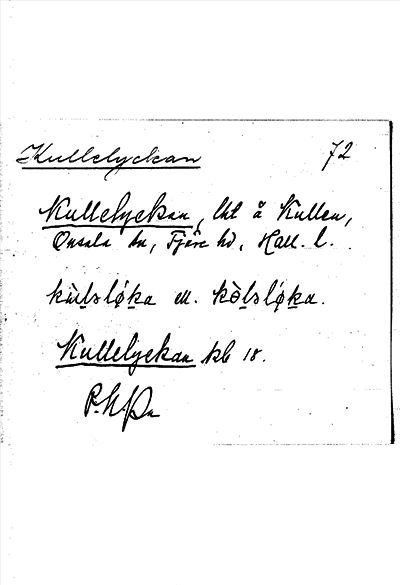 Kullelyckan 72
Kullelyckan, lht å Kullen,
Onsala sn, Fjäre hd, Hall. l.
kùlsløka el. kòlsløka.
Kullelyckan kb 18.
P.N.Pn